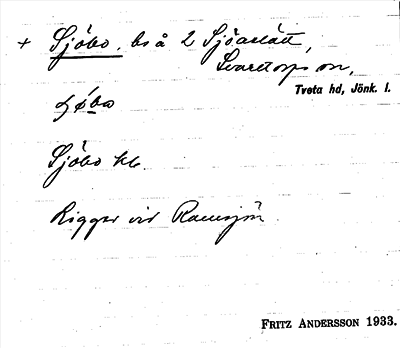 + Sjöbo, bs å 2 Sjöaslätt,
Svarttorps sn,
Tveta hd, Jönk. l.
Sjöbo
Ligger vid Ramsjön
FRITZ ANDERSSON 1933.